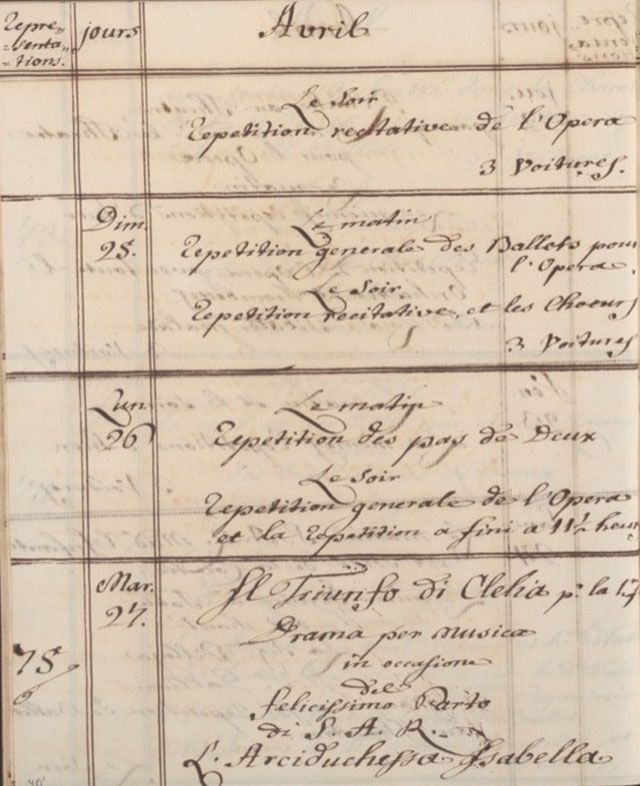 Repre=
=senta=
=tions.
jours
Avril
Le Soir
Repetition recitative de l'Opera
3 Voitures.
Dim.
25.
Le matin
Repetition generale des Ballets pour
l'Opera.
Le Soir
Repetition recitative, et les Choeurs
3 Voitures
Lun.
26
Le matin
Repetition des pas de Deux
Le Soir
Repetition generale de l'Opera
et la Repetition a fini a 11½ heur
Mar.
27.
75
Il Triunfo di Clelia p: la 1.
Drama per Musica
in occasione
del
felicissimo Parto
di S. A. R.
L'Arciduchessa Isabella